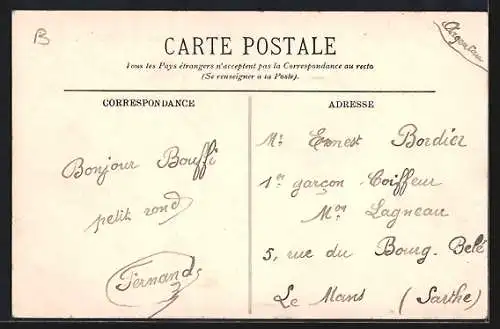 B
CARTE POSTALE
Tous les Pays étrangers n'acceptent pas la Correspondance au recto
(Se renseigner à la Poste).
CORRESPONDANCE
Bonjour Bouffi
petit rond
Fernand
ADRESSE
Mr Ernest Bordier
1er garçon Coiffeur
Mon Lagneau
5, rue du Bourg-Belé
Le Mans (Sarthe)